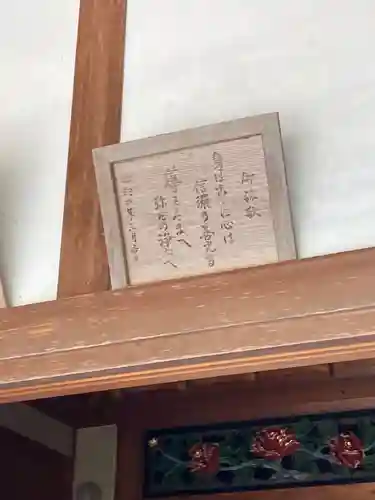 御詠歌
身はここに心は
信濃の善光寺
導きたまへ
弥陀の浄土へ